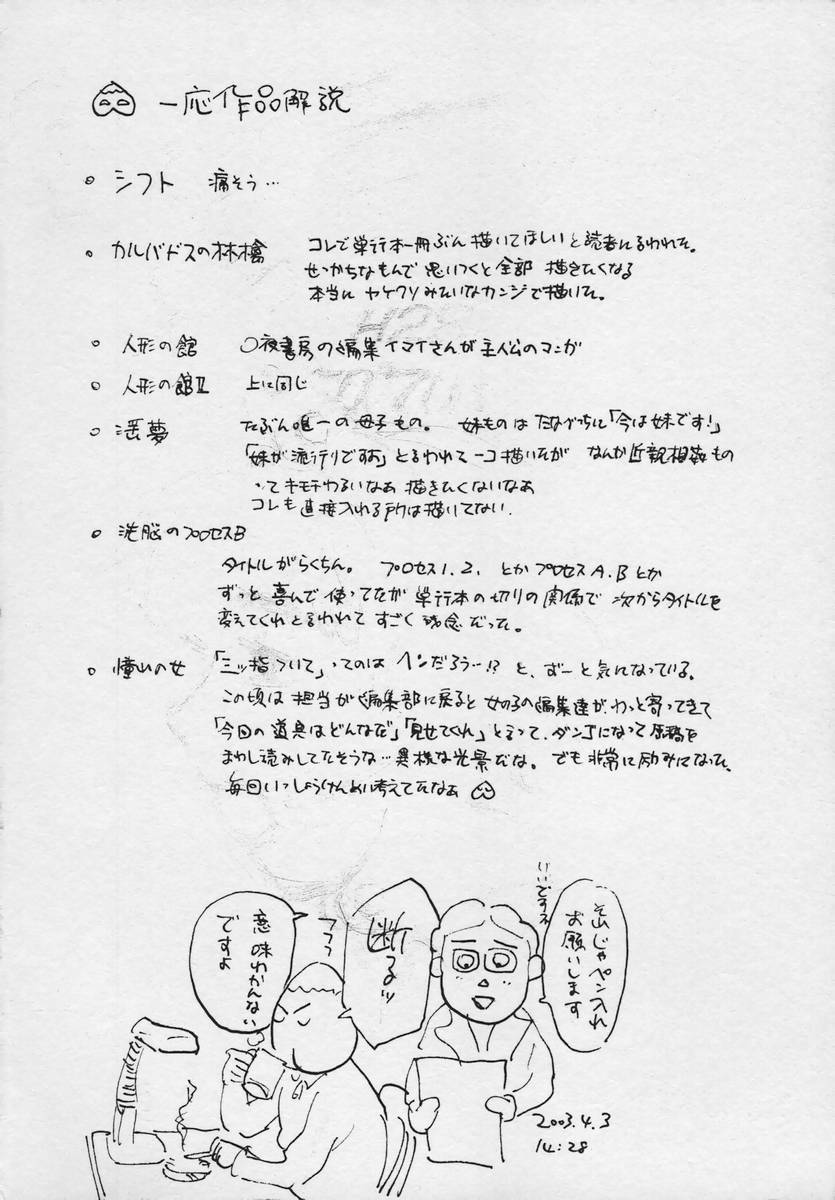 一応作品解説
○ シフト 痛そう…
○ カルバドスの林檎 コレで単行本一冊ぶん描いてほしいと読者にるわれた。
せっかちなもんで思いつくと全部 描きたくなる
本当に ヤケクソみたいなカンジで描いた。
○ 人形の館 ○夜書房の編集イマイさんが主人公のマンガ
○ 人形の館Ⅱ 上に同じ
○ 淫夢 たぶん唯一の母子もの。 妹ものは たなべっちに「今は妹です!」
「妹が流行りですよ」とるわれて一コ描いたが なんか近親相姦もの
ってキモチわるいなぁ 描きたくないなぁ
コレも直接入れる所は描いてない.
○ 洗脳のプロセスB
タイトルがらくちん。 プロセス1.2. とかプロセスA.Bとか
ずっと喜んで使ってたが単行本の切りの関係で 次からタイトルを
変えてくれとるわれて すごく残念だった。
○ 憧れの女 「三ッ指ついて」ってのは ヘンだろうー!? と、ずーと気になっている。
この頃は担当が編集部に戻ると女の子の編集達が、わっと寄ってきて
「今回の道具はどんなだ」「見せてくれ」と言って、ダンゴになって原稿を
まわし読みしてたそうな…異様な光景だな。でも非常に励みになった。
毎回いっしょうけんめい考えてたなぁ
いいですね
それじゃペン入れ
お願いします
断るッ
フフフ
意味わかんない
ですよ
2003.4.3
14:28